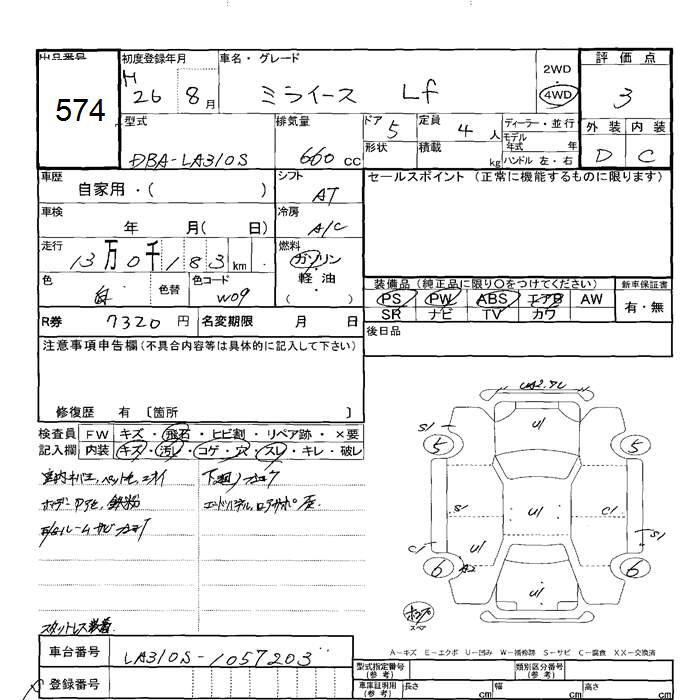 出品番号
574
初度登録年月
H 26 8 月
車名・グレード
ミライース Lf
2WD
4WD
評価点
3
外装 内装
D C
型式
DBA-LA310S
排気量
660 cc
ドア 5
形状
定員 4 人
積載 kg
ディーラー・並行
モデル年式 年
ハンドル 左・右
車歴
自家用・( )
シフト
AT
セールスポイント (正常に機能するものに限ります)
車検
年 月( 日)
冷房
A/C
走行
13万0千183 km
燃料
ガソリン
軽・油
( )
色
白
色替
色コード
W09
装備品(純正品に限り○をつけてください)
新車保証書
PS PW ABS エアB AW
SR ナビ TV カワ
有・無
R券 7320 円 名変期限 月 日
後日品
注意事項申告欄(不具合内容等は具体的に記入して下さい)
修復歴 有 〔箇所 〕
検査員
記入欄
FW キズ・飛石・ヒビ割・リペア跡・×要
内装 キズ・汚レ・コゲ・穴・スレ・キレ・破レ
下廻り
鉄粉
スタットレス装着
U1
S1
5
5
S1
U1
C1
S1
C1
U1
A2
6
6
U1
A-キズ E-エクボ U-凹み W-補修跡 S-サビ C-腐食 XX-交換済
車台番号 LA310S-1057203
登録番号
型式指定番号
(参考)
類別区分番号
(参考)
車庫証明用
(参考)
長さ cm 幅 cm 高さ cm